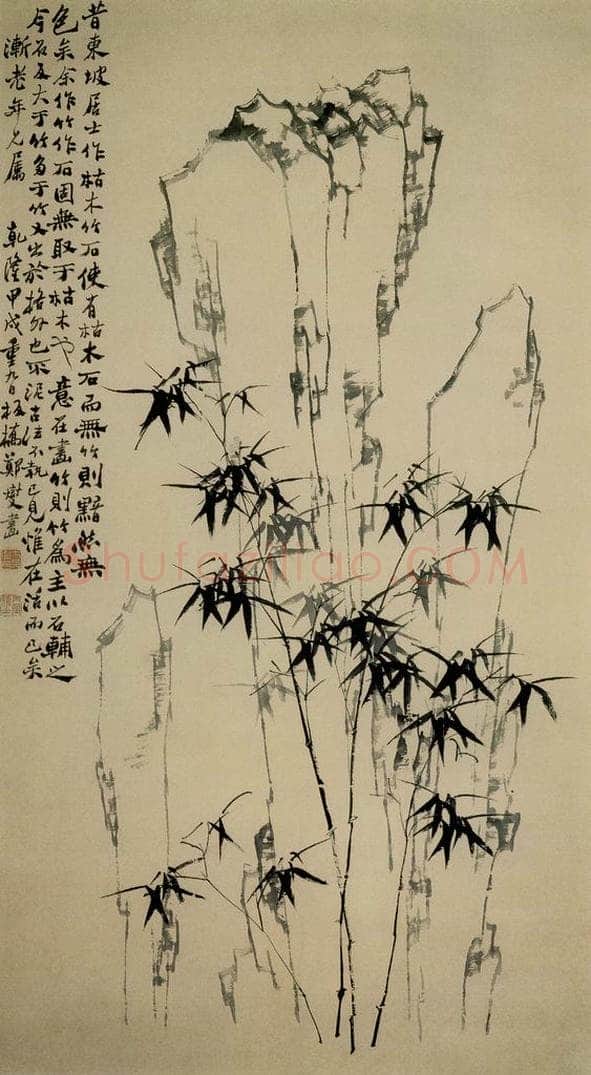 昔東坡居士作枯木竹石使有枯木石而無竹則黯然無
色矣余作竹作石固無取于枯木也意在畫竹則竹為主以石輔之
今石反大于竹多于竹又出於格外也不泥古法不執己見惟在活而已矣
漸老年兄屬 乾隆甲戌重九日板橋鄭燮畫
Shufaziliao.COM